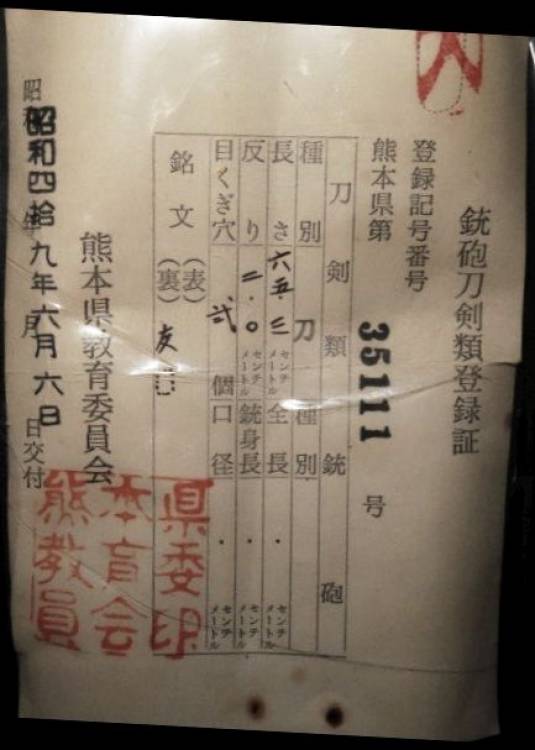 銃砲刀剣類登録証
登録記号番号
熊本県第 35111 号
刀剣類 銃砲
種別 刀 種別
長さ 六五.三 センチメートル 全長 . センチメートル
反り 二.〇 センチメートル 銃身長 . センチメートル
目くぎ穴 弐 個 口径 . センチメートル
銘文 (表)
(裏) 友
熊本県教育委員会
昭和四拾九年六月六日
日交付
県委印
本育会
熊教員